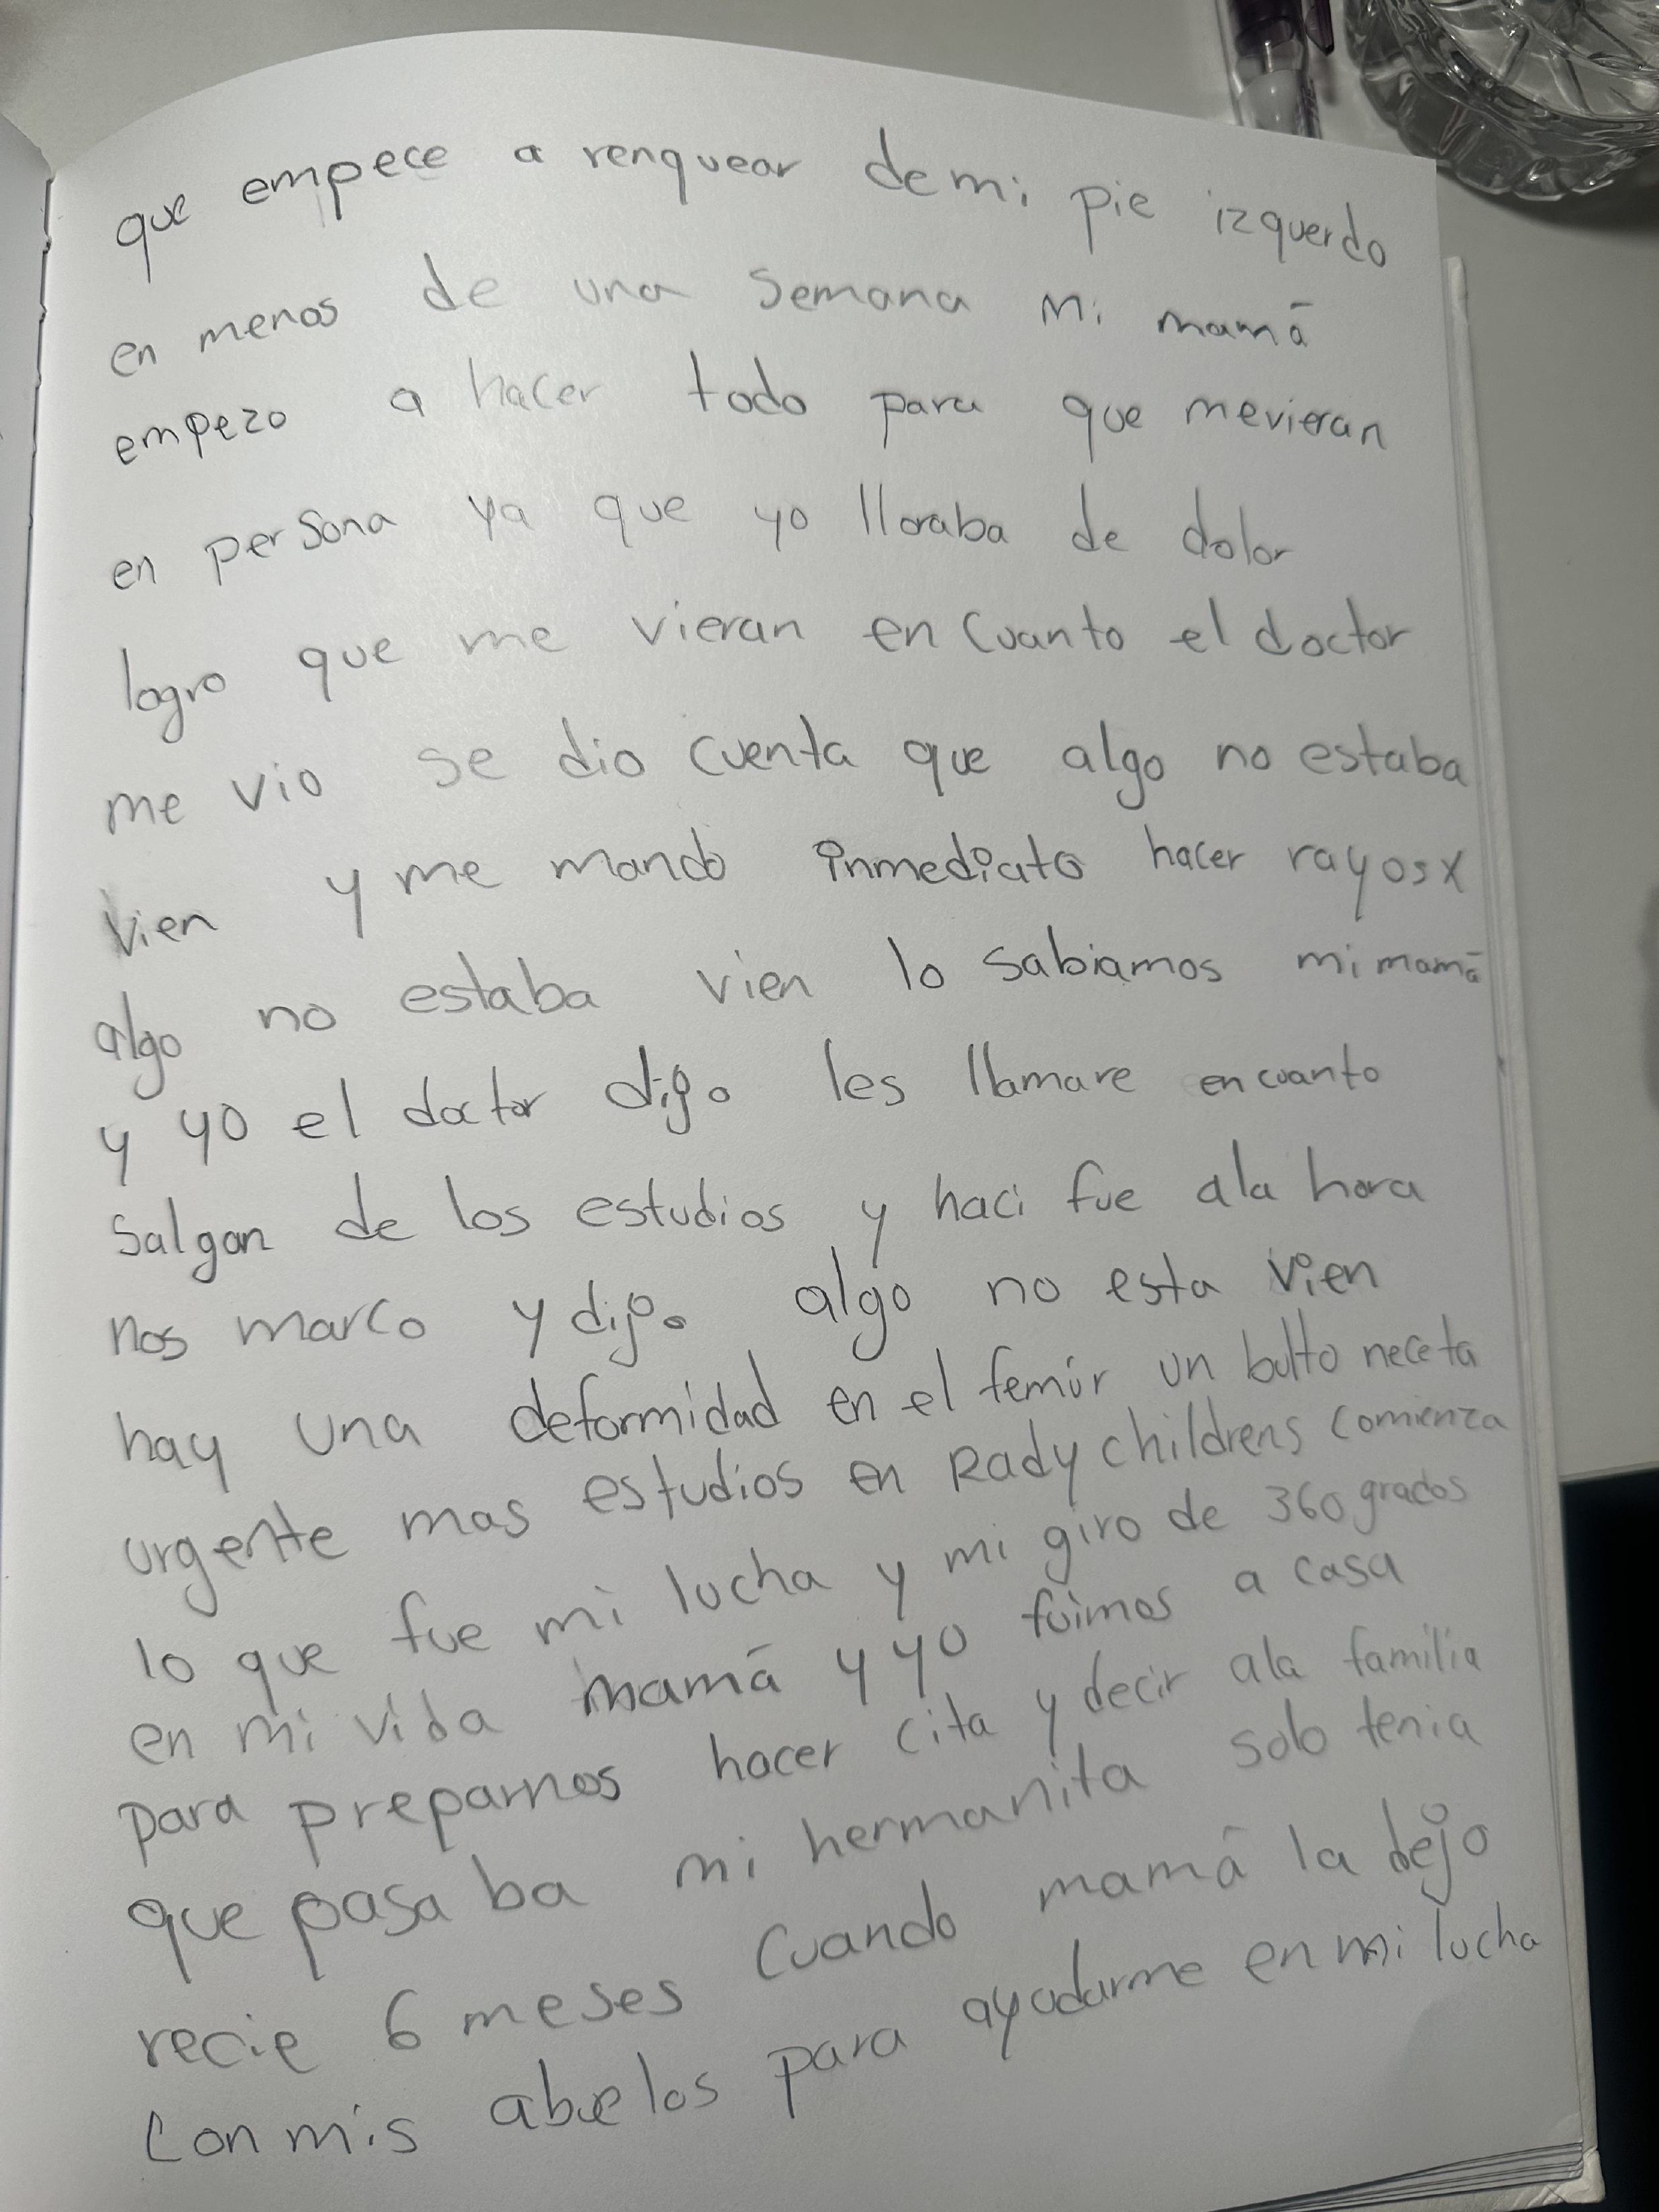 que empece a renquear de mi pie izquerdo
en menos de una semana mi mamá
empezo a hacer todo para que mevieran
en persona ya que yo lloraba de dolor
logro que me vieran en cuanto el doctor
me vio se dio cuenta que algo no estaba
vien y me mando inmediato hacer rayos x
algo no estaba vien lo sabiamos mi mamá
y yo el doctor dijo les llamare en cuanto
salgan de los estudios y haci fue ala hora
nos marco y dijo algo no esta vien
hay una deformidad en el femúr un bulto neceta
urgente mas estudios en Rady childrens comienza
lo que fue mi lucha y mi giro de 360 grados
en mi vida mamá y yo fuimos a casa
para preparnos hacer cita y decir ala familia
que pasaba mi hermanita solo tenia
recie 6 meses cuando mamá la dejo
con mis abuelos para ayudarme en mi lucha